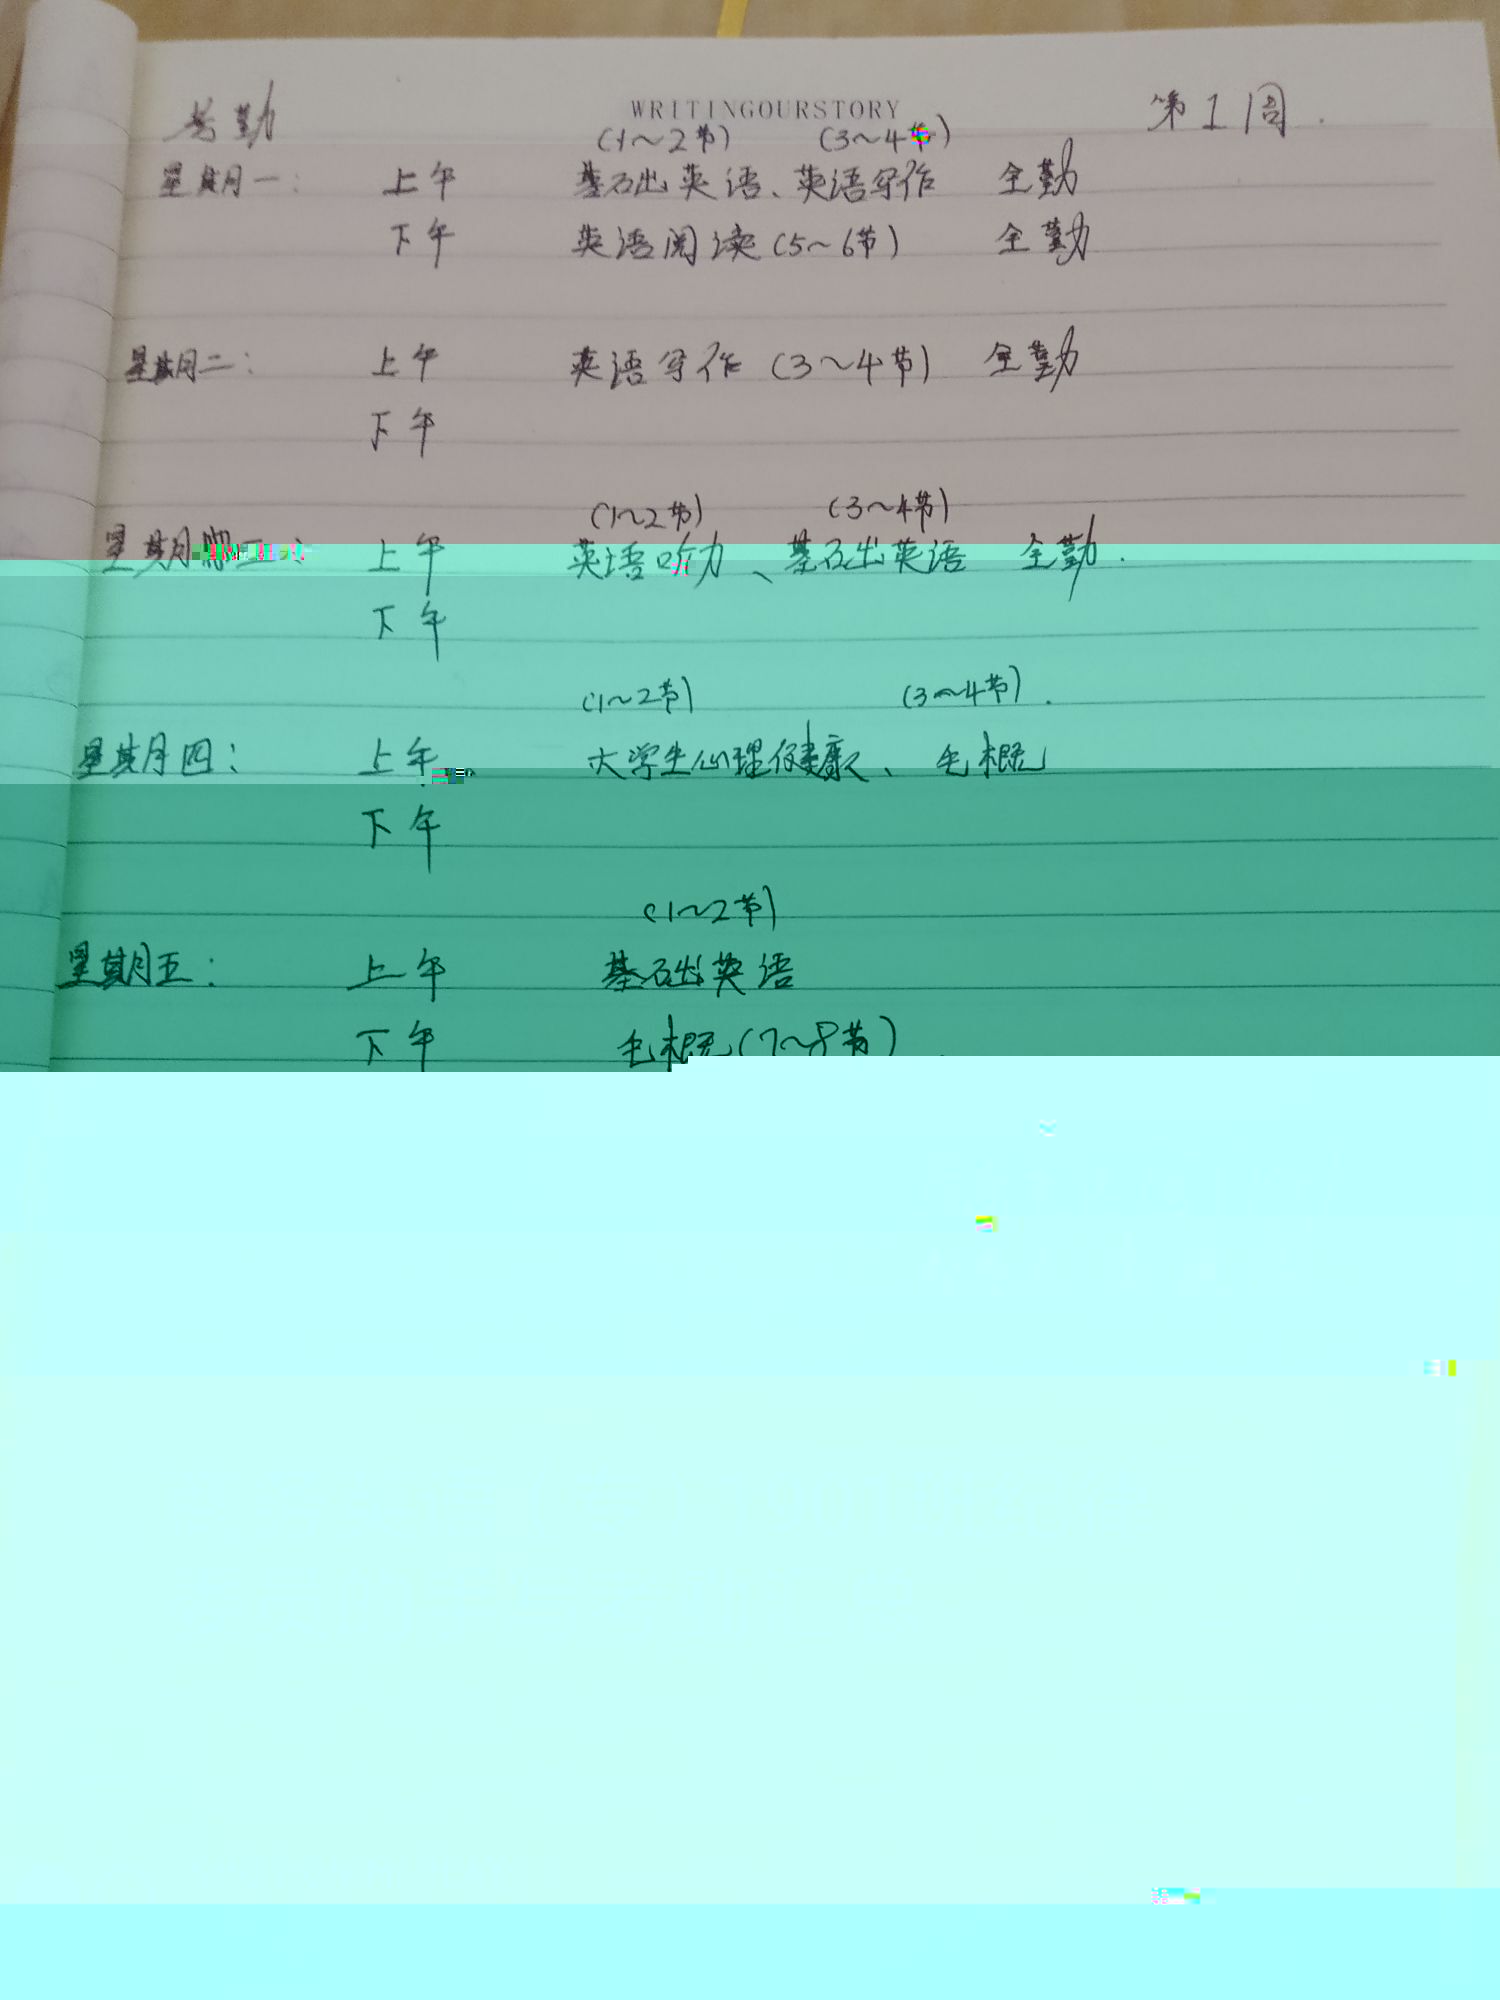 WRITINGOURSTORY
考勤 第1周.
(1~2节) (3~4节)
星期一: 上午 基础英语、英语写作 全勤
下午 英语阅读(5~6节) 全勤
星期二: 上午 英语写作(3~4节) 全勤
下午
(1~2节) (3~4节)
星期三: 上午 英语听力、基础英语 全勤.
下午
(1~2节) (3~4节).
星期四: 上午 大学生心理健康、毛概
下午
(1~2节)
星期五: 上午 基础英语
下午 毛概(7~8节)